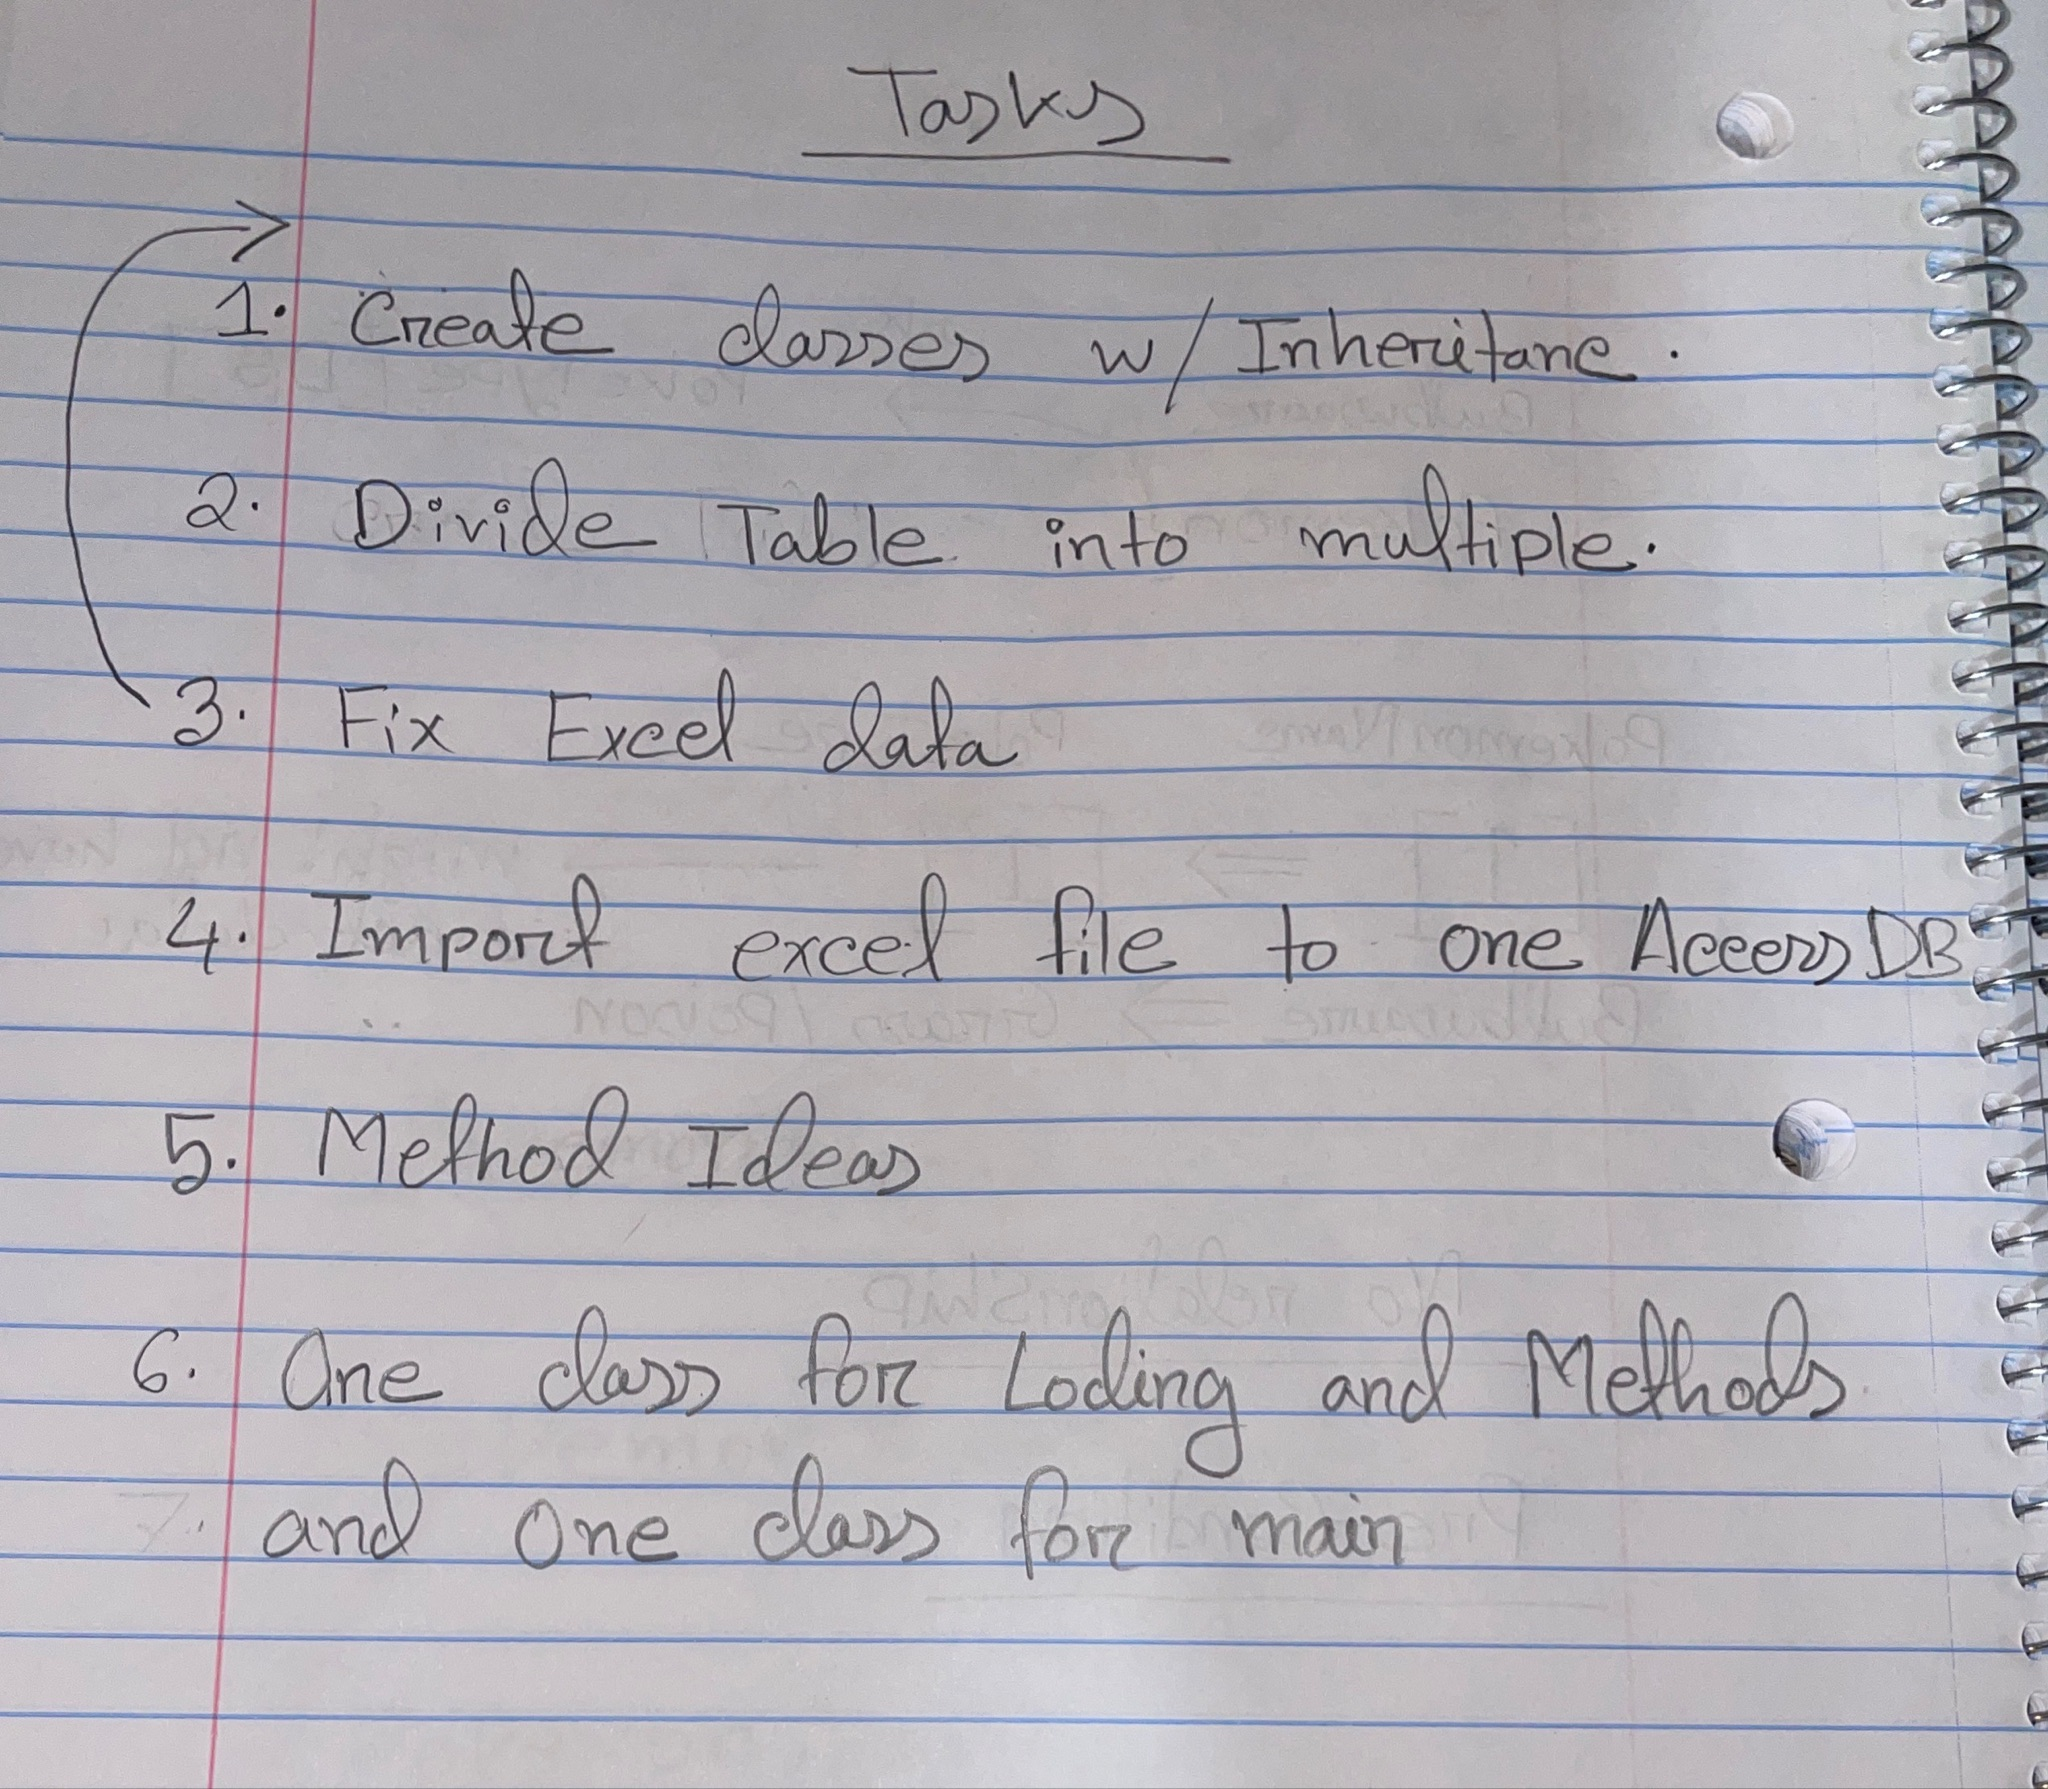 Tasks
1. Create classes w/ Inheritane.
2. Divide Table into multiple.
3. Fix Excel data
4. Import excel file to one Access DB
5. Method Ideas
6. One class for Loding and Methods
and One class for main